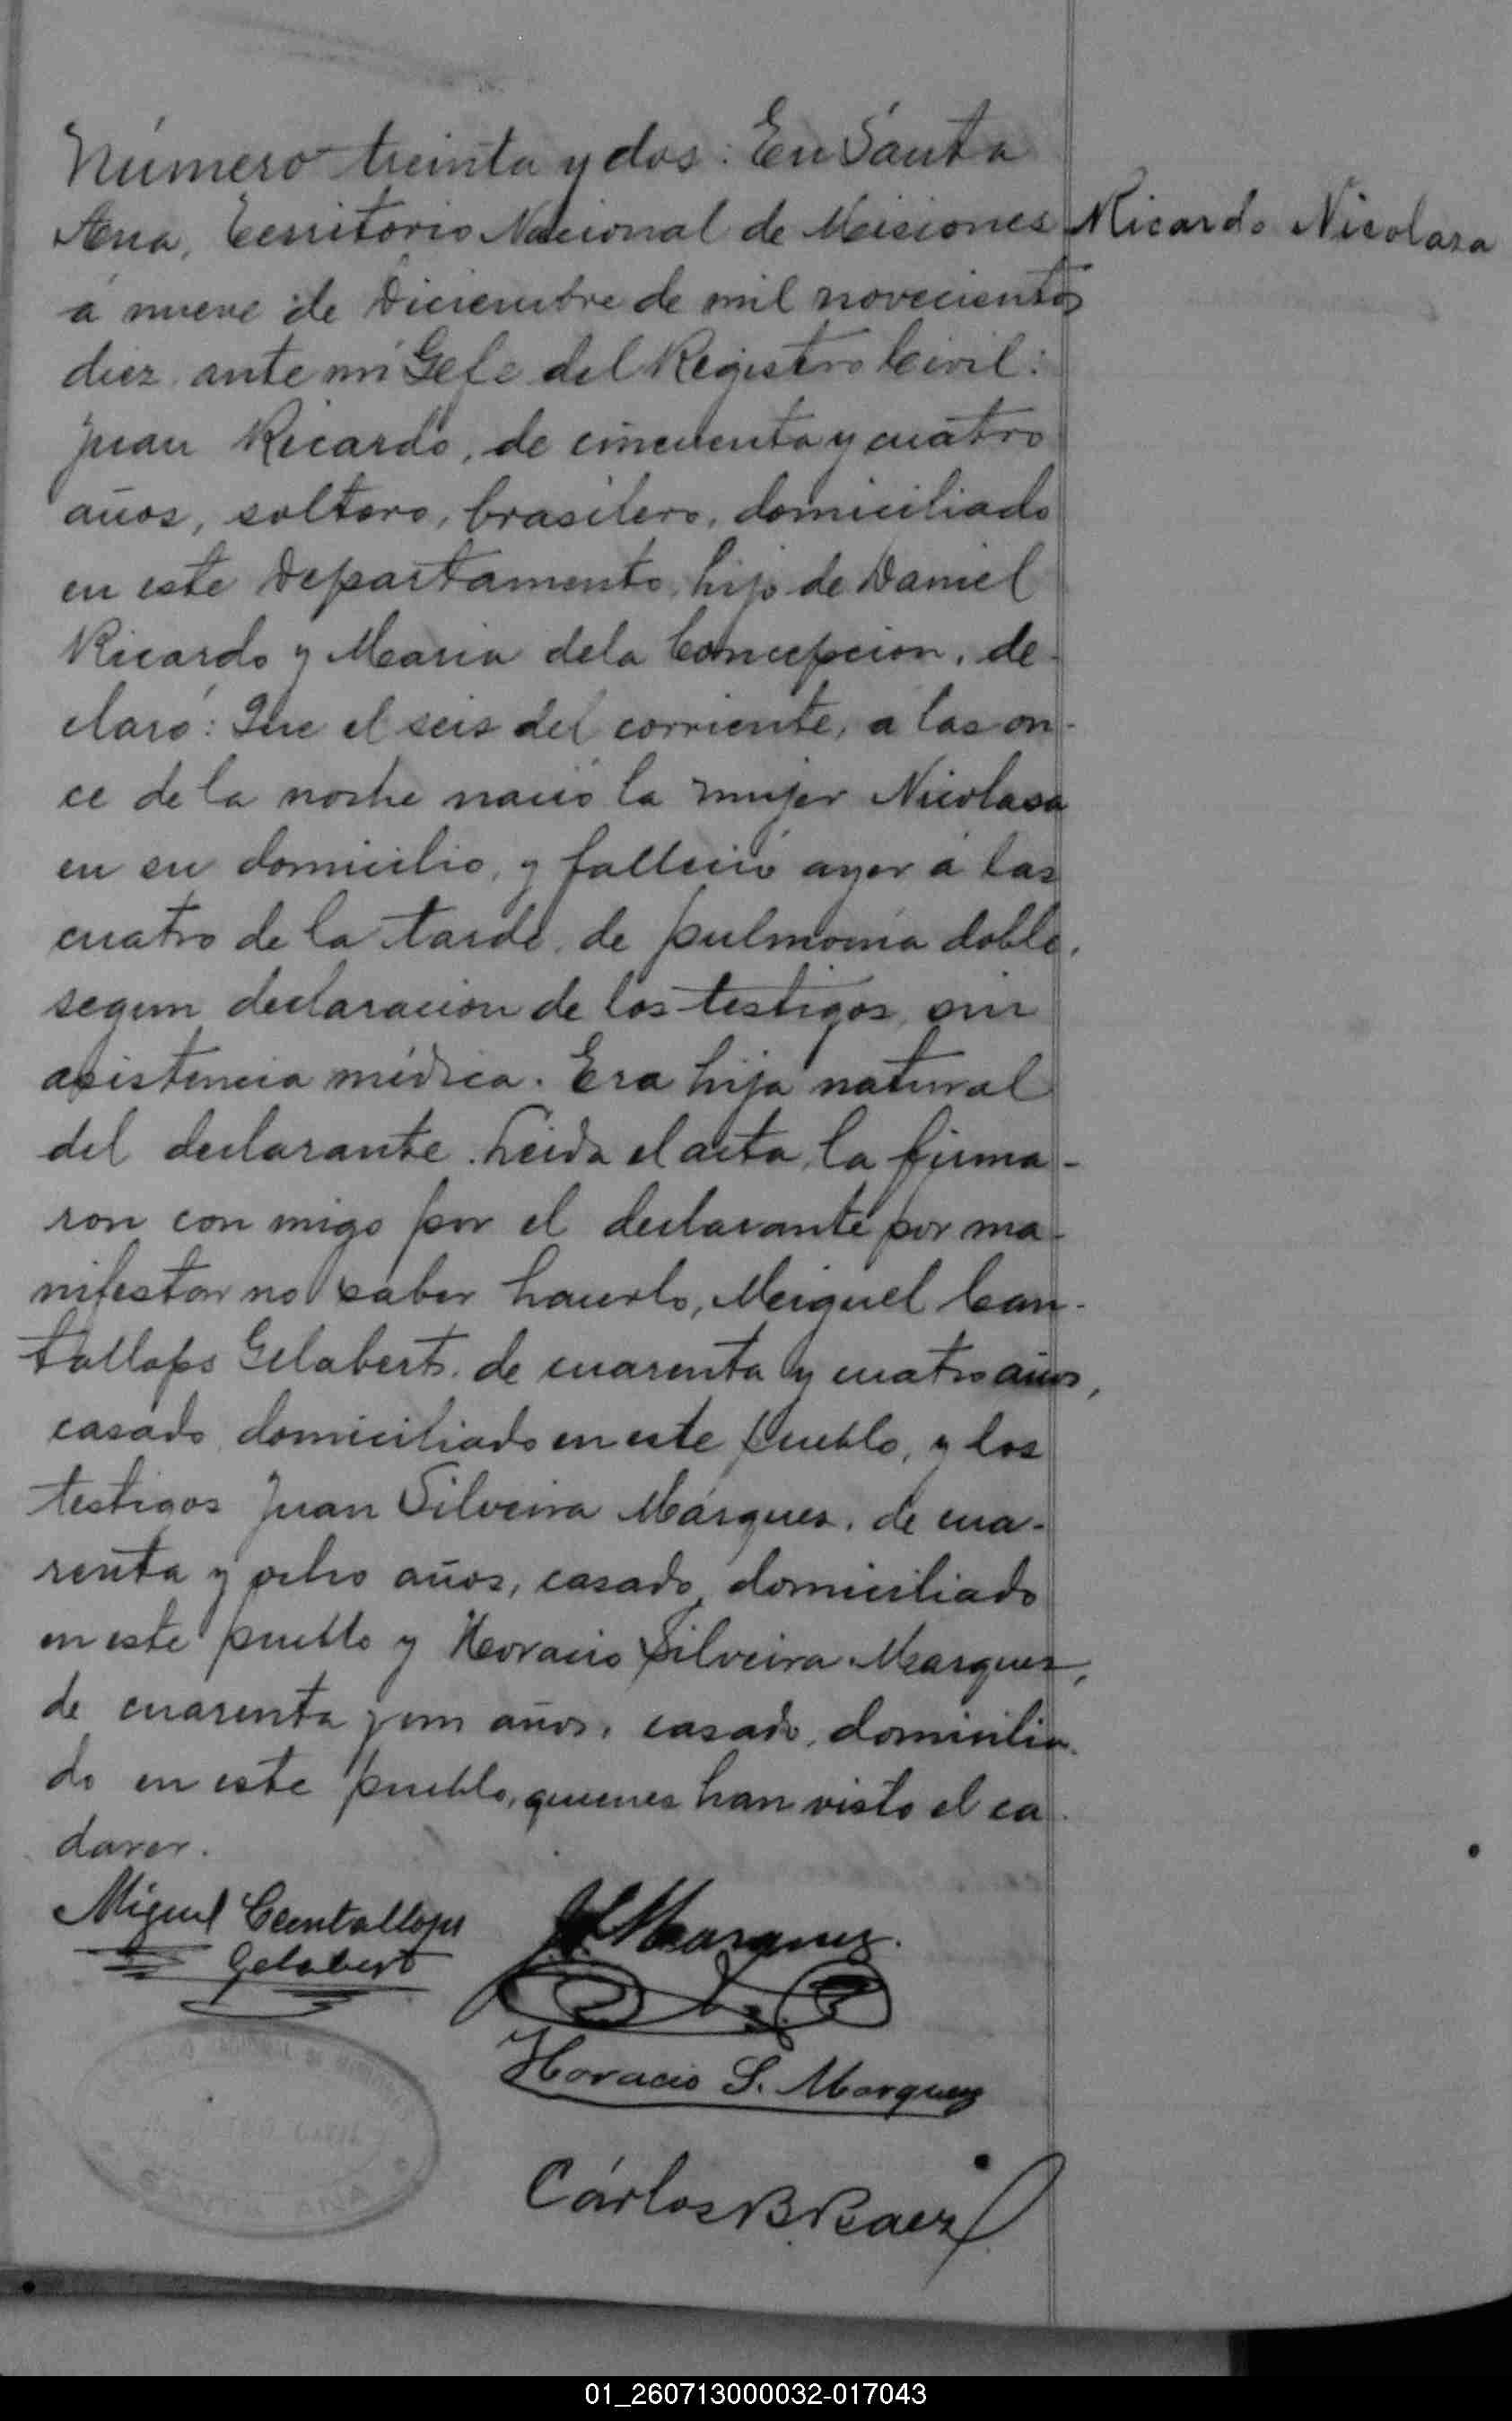 Número treinta y dos: En Santa
Ana, Territorio Nacional de Misiones
Ricardo Nicolasa
á nueve de Diciembre de mil novecientos
diez, ante mi Gefe del Registro Civil:
Juan Ricardo, de cincuenta y cuatro
años, soltero, brasilero, domiciliado
en este Departamento, hijo de Daniel
Ricardo y Maria dela Concepcion, de-
claró: Que el seis del corriente, a las on-
ce de la noche nació la mujer Nicolasa
en su domicilio, y falleció ayer á las
cuatro de la tarde, de pulmonia doble,
segun declaracion de los testigos, sin
asistencia médica. Era hija natural
del declarante. Leida el acta, la firma-
ron con migo por el declarante por ma-
nifestar no saber hacerlo, Miguel Can-
tallops Gelabert, de cuarenta y cuatro años,
casado, domiciliado en este pueblo, y los
testigos Juan Silveira Márques, de cua-
renta y ocho años, casado, domiciliado
en este pueblo y Horacio Silveira Marques,
de cuarenta y un años, casado, domicilia-
do en este pueblo, quienes han visto el ca-
daver.
Miguel Cantallops
Gelabert
J. S. Marques.
Horacio S. Marques
Cárlos B. Baez
01_260713000032-017043